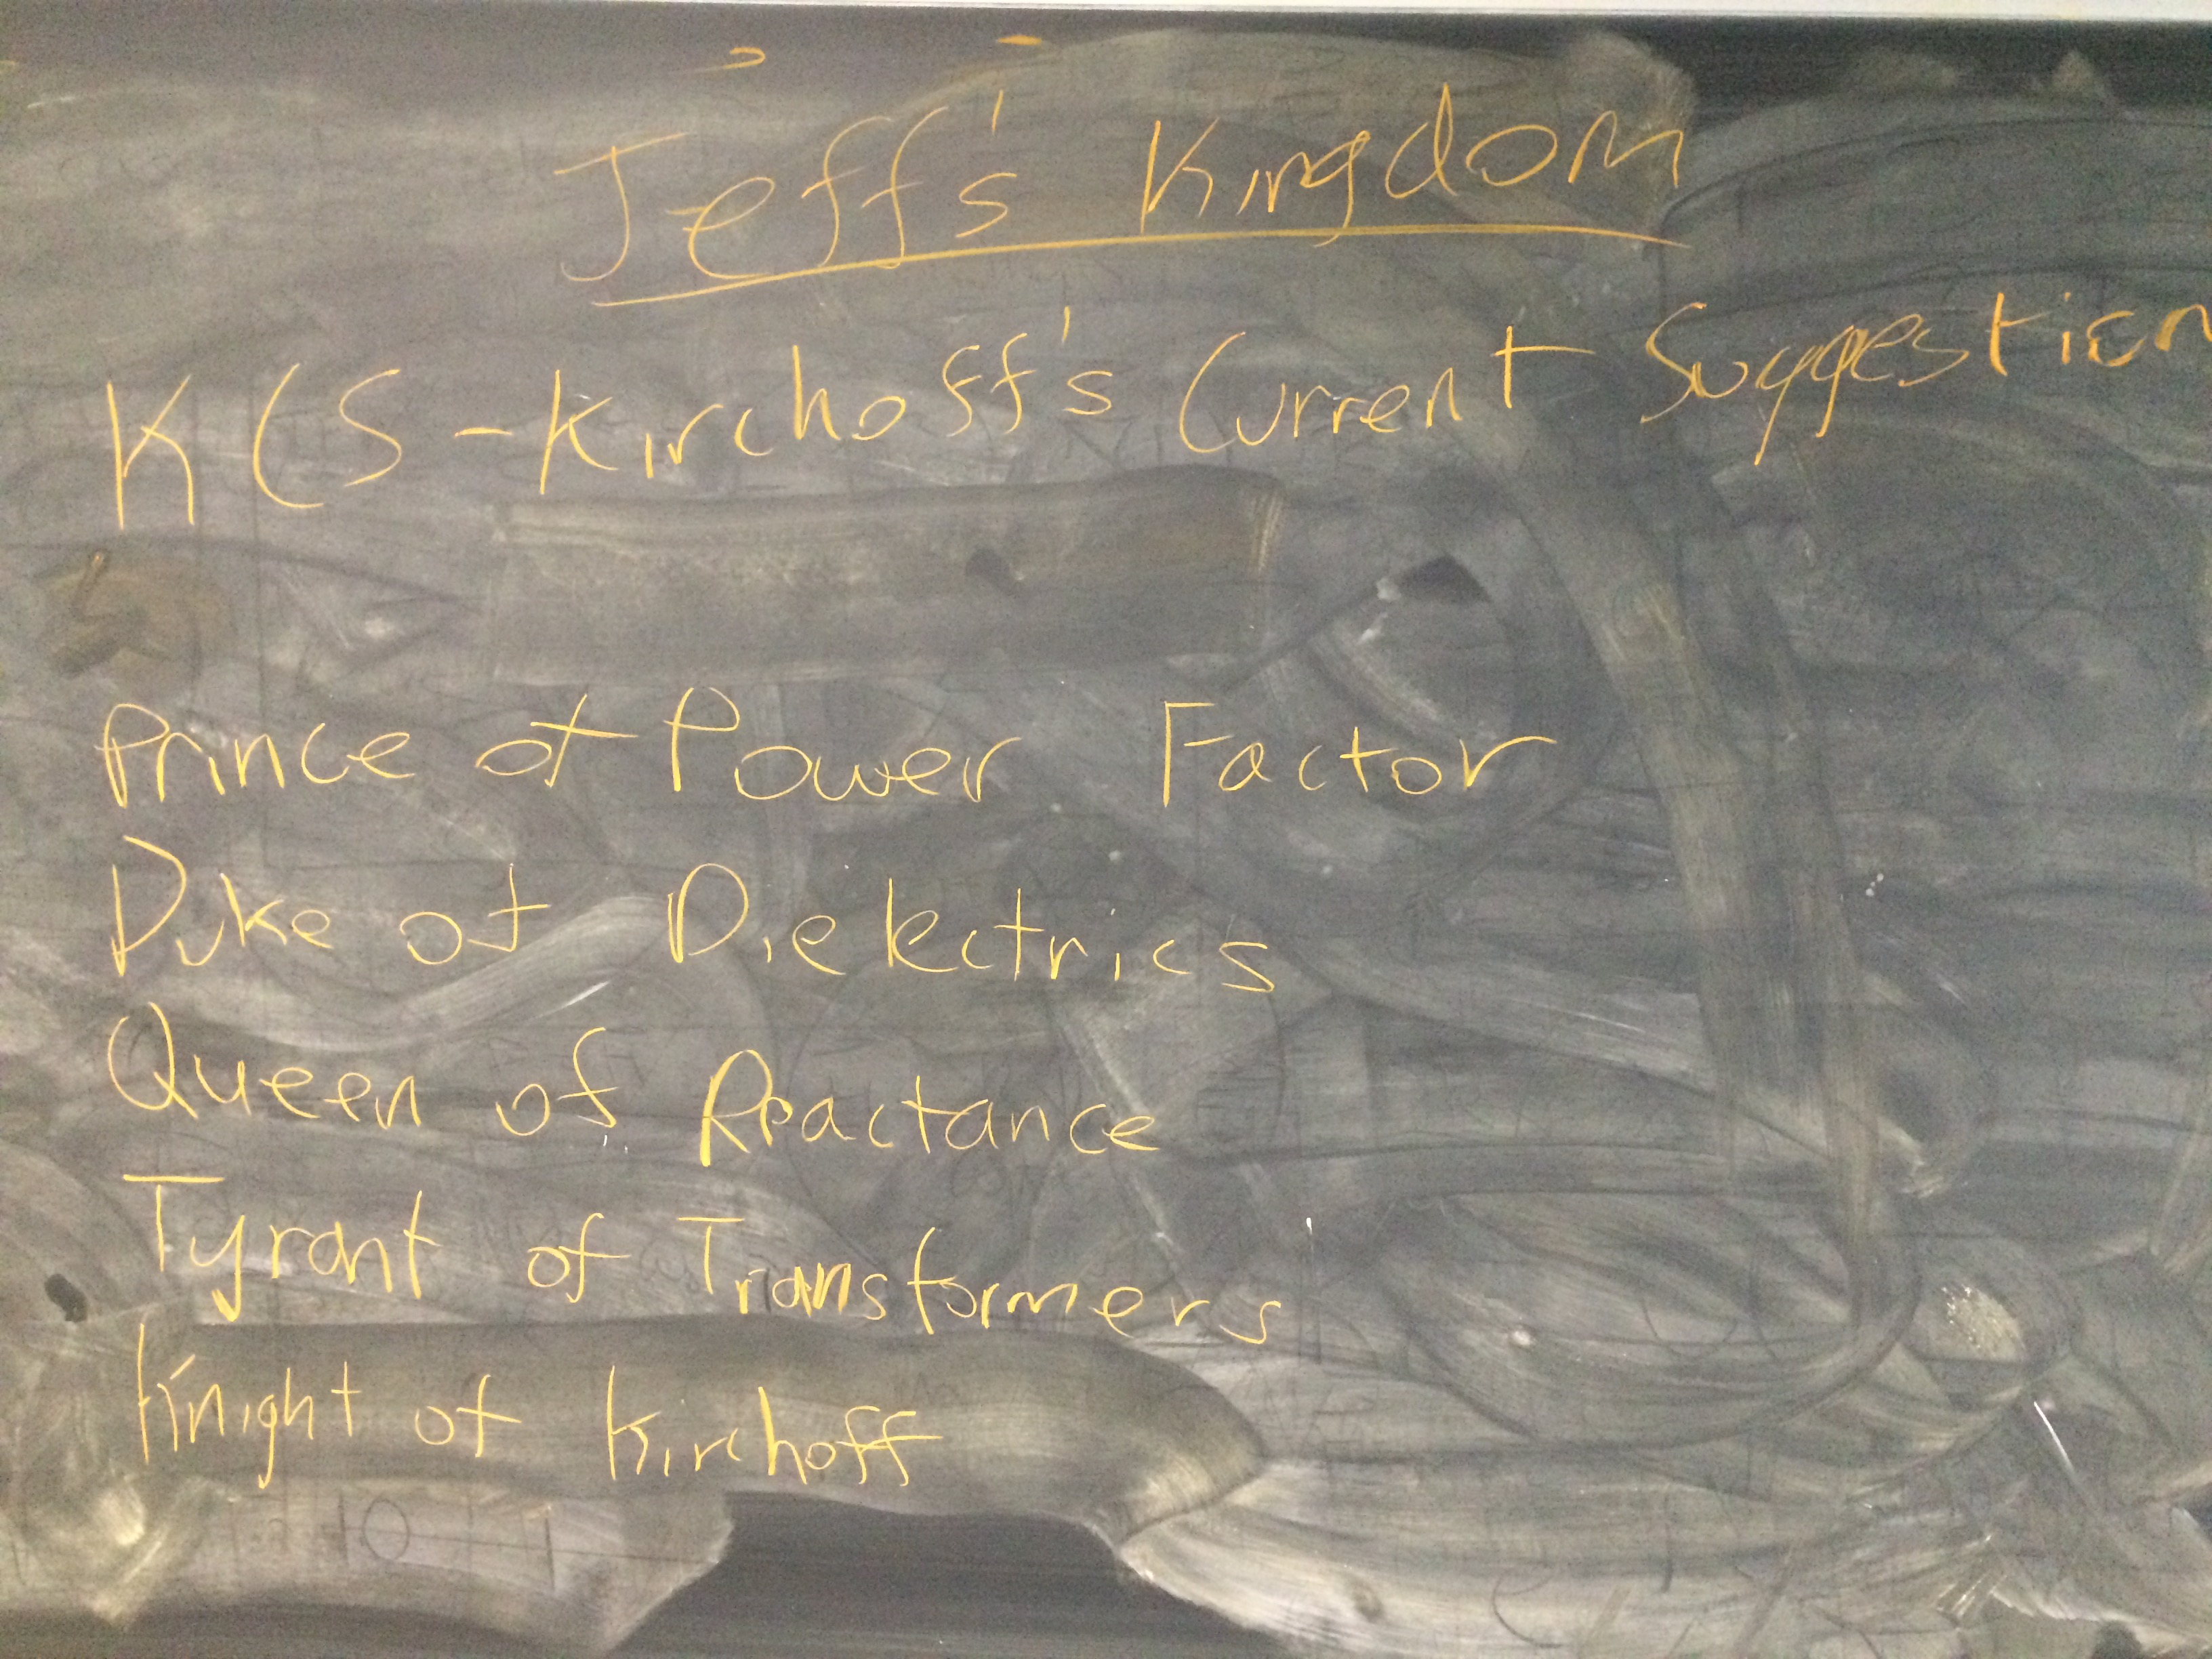 Jeff's Kingdom
KCS - Kirchoff's Current Suggestion
Prince of Power Factor
Duke of Dielectrics
Queen of Reactance
Tyrant of Transformers
Knight of Kirchoff